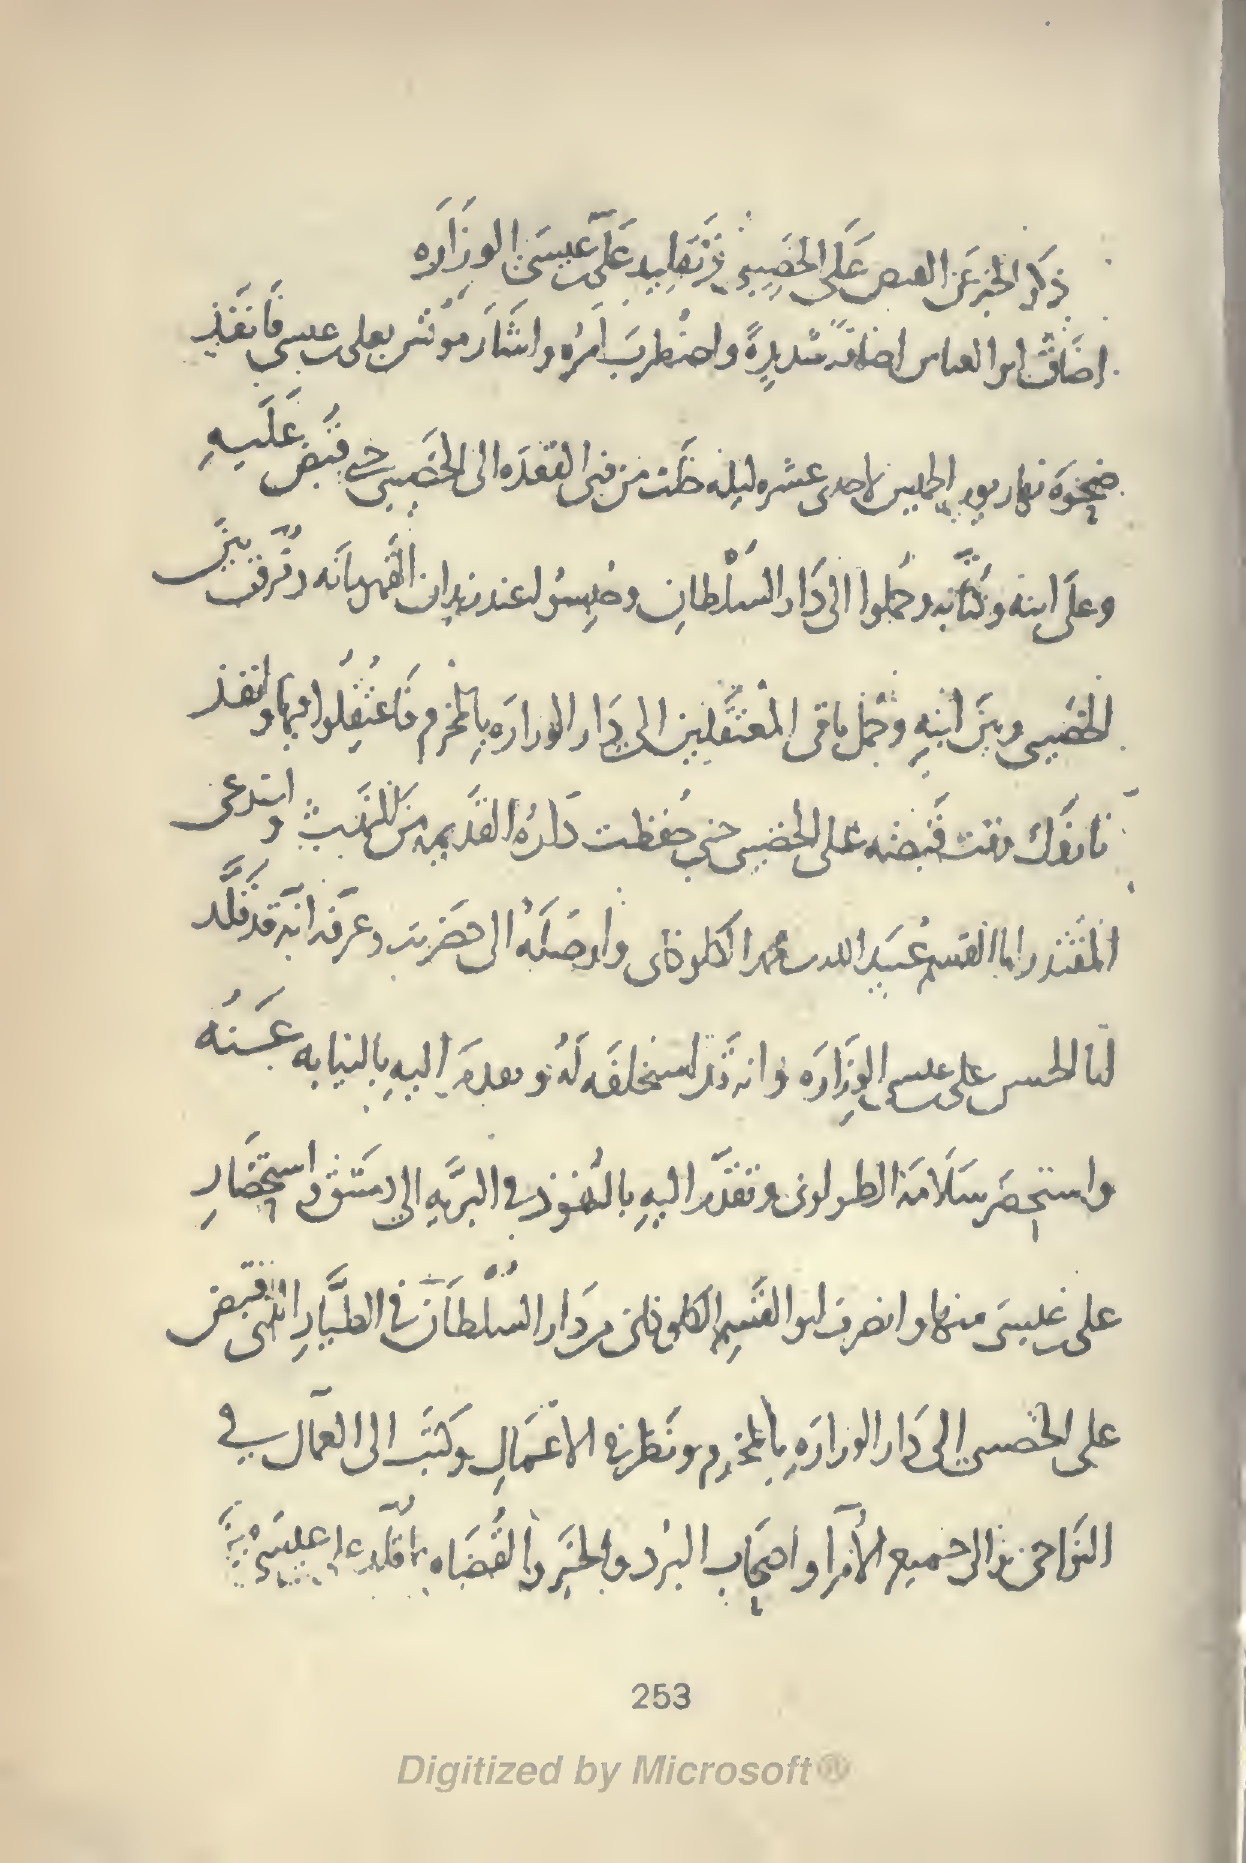 ذكر الخبر عن القبض على الخصيبي وتقليد علي بن عيسى الوزاره
اضاق ابو العباس اضاقه شديدةً واضطربَ امرُه واشارَ مونس بعلى بن عيسى فانفذ
ضحوة نهار يوم الخميس لاحدى عشره ليله خلت من ذى القعدَه الى الخصيبى حتى قبض عليهِ
وعلى ابنه وكتّابه وحُملوا الى دَار السُلْطانِ وحُبِسوُا عند زيدان القهرمانه وفرق بين
الخصيبى وبين ابنهِ وحُمل باقى المُعتقَلين الى دَار الوزارَه بالمخرم فاعتُقِلُوا فيها وانفذ
نازوك وقت قبضه على الخصيبى حتى حفظت دَارهُ القديمه من النهب واستدعى
المقتدر ابا القسم عُبيد الله بن محمد الكلوذانى واوصَلَهُ الى حضرته وعرفه انه قد قلّد
ابا الحسن على بن عيسى الوزارَه وانه قد استخلفَه لهُ وتقدمَ اليهِ بالنيابه عنهُ
واستحضرَ سلامَة الطولونى وتقدّم اليهِ بالنُفوذ فى البرّيهِ الى دمشق واستحضارِ
على بن عيسىَ منها وانصرف ابو القسِم الكلوذانى من دَار السُلْطان فى الطيّارِ الذى قبض
على الخصيبى الى دَار الوزارَهِ بالمخرم ونظر فى الاعمَالِ وكتبَ الى العمّال فى
النواحى والى جميع الاُمرآ واصحَاب البُرد والخبَر والقُضَاه بما قلده على بن عيسى من
253
Digitized by Microsoft®